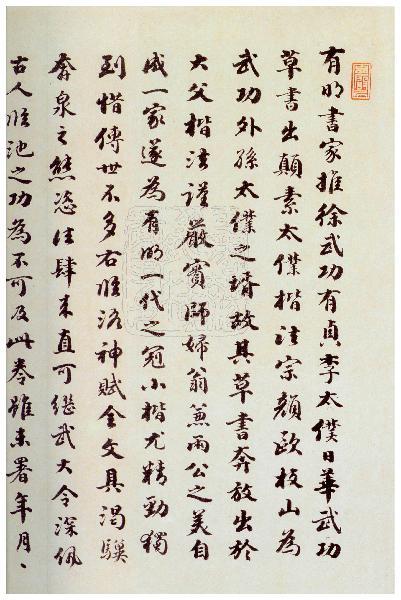 有明書家推徐武功有貞李太僕日華武功
草書出顛素太僕楷法宗顏歐枝山為
武功外孫太僕之壻故其草書奔放出於
大父楷法謹嚴實師婦翁兼兩公之美自
成一家遂為有明一代之冠小楷尤精勁獨
到惜傳世不多右臨洛神賦全文具渴驥
奔泉之態恣法肆來直可繼武大令深佩
古人臨池之功為不可及此卷雖未署年月